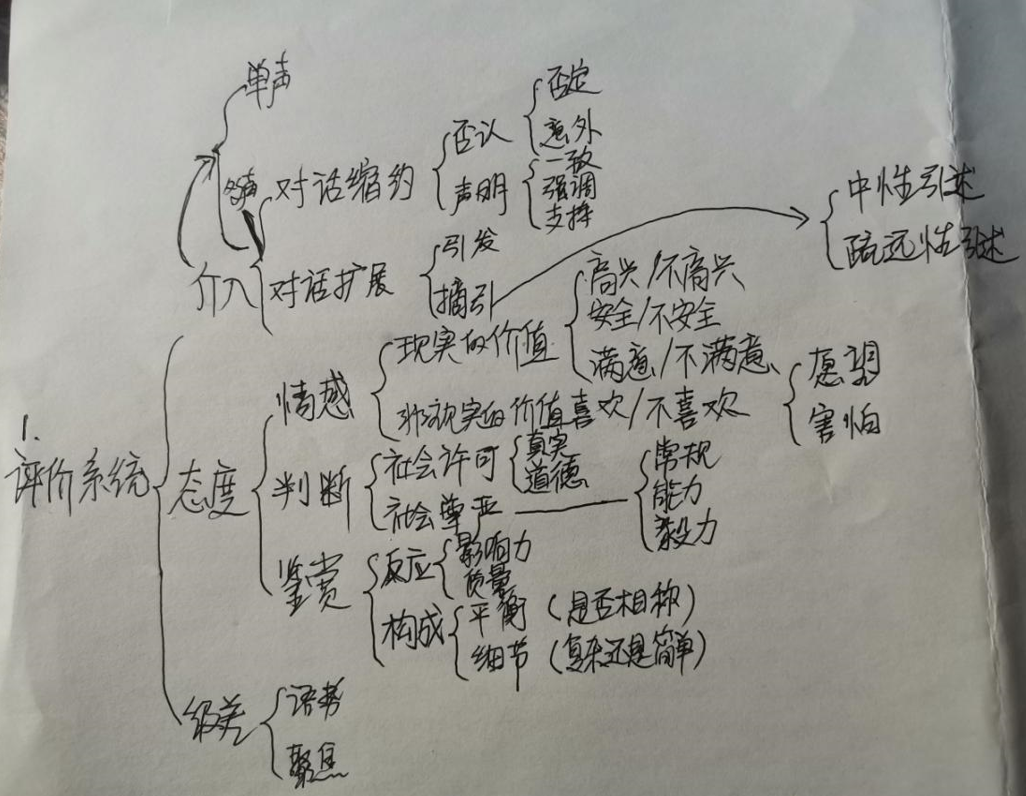 单声
多声
对话缩约
否认
否定
意外
声明
一致
强调
支持
介入
对话扩展
引发
摘引
中性引述
疏远性引述
1.
评价系统
态度
情感
现实的价值
高兴/不高兴
安全/不安全
满意/不满意
非现实的价值喜欢/不喜欢
愿望
害怕
判断
社会许可
真实
道德
社会尊严
常规
能力
毅力
鉴赏
反应
影响力
质量
构成
平衡(是否相称)
细节(复杂还是简单)
级差
语势
聚焦